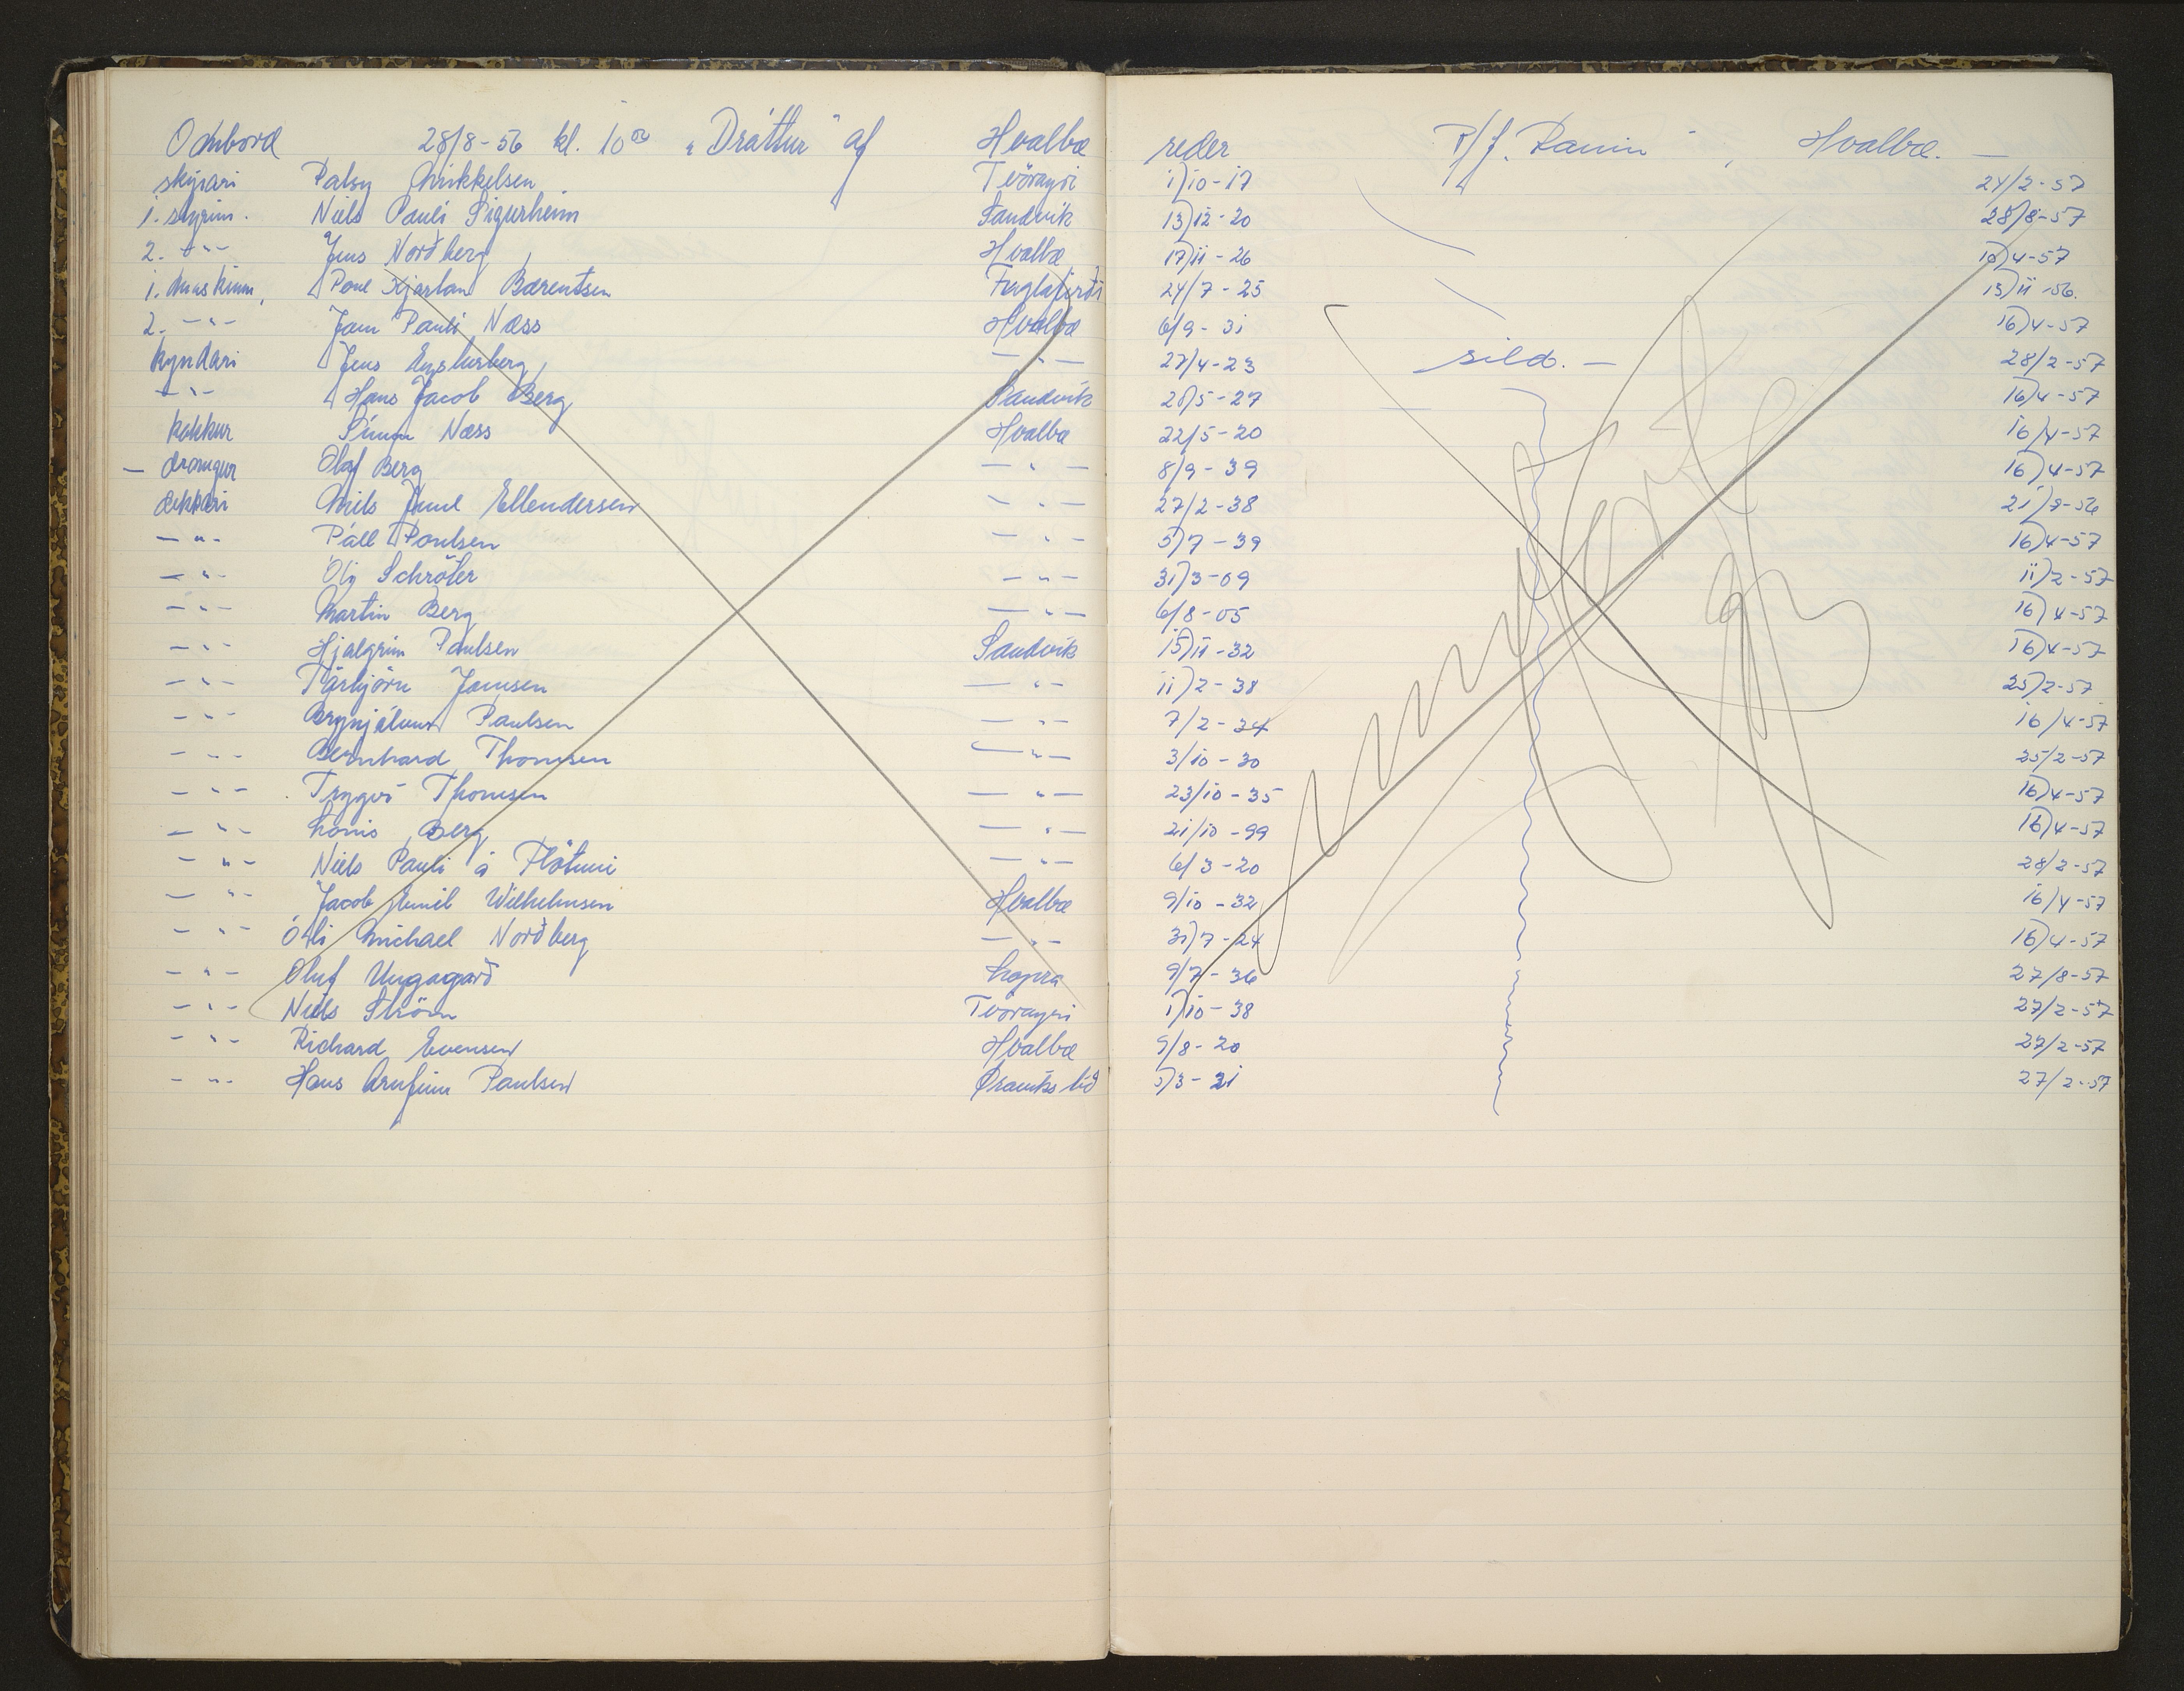 Ombord 28/8-56 kl. 10 00 "Dráttur" af Hvalbø reder P/f. Ranin, Hvalbø. —
skipari Palsy Mikkelsen Tvöroyri 1/10-17 24/2-57
1. stýrim. Niels Pauli Sigurheim Sandvik 13/12-20 28/8-57
2. -"- Jens Norðberg Hvalbø 17/11-26 16/4-57
1. maskinm, Poul Kjartan Bærentsen Fuglafirði 24/7-25 15/11-56.
2. -"- Jam Pauli Næss Hvalbø 6/9-31 16/4-57
kyndari Jens Eysturberg -"- 27/4-23 sild. — 28/2-57
-"- Hans Jacob Berg Sandvik 28/5-27 16/4-57
kokkur Símun Næss Hvalbø 22/5-20 16/4-57
— drongur Olaf Berg -"- 8/9-39 16/4-57
dekkari Niels Juul Ellendersen -"- 27/2-38 21/9-56
-"- Páll Poulsen -"- 5/7-39 16/4-57
-"- Óli Schröter -"- 31/3-09 11/2-57
-"- Martin Berg -"- 6/8-05 16/4-57
-"- Hjalgrim Paulsen Sandvik 15/11-32 16/4-57
-"- Tórbjörn Joensen -"- 11/2-38 25/2-57
-"- Brynjálvur Paulsen -"- 7/2-34 16/4-57
-"- Bernhard Thomsen -"- 3/10-30 25/2-57
-"- Tryggvi Thomsen -"- 23/10-35 16/4-57
-"- Louis Berg -"- 21/10-99 16/4-57
-"- Niels Pauli á Fløtuni -"- 6/3-20 28/2-57
-"- Jacob Emil Wilhelmsen Hvalbø 9/10-32 16/4-57
-"- Óli Michael Norðberg -"- 31/7-24 16/4-57
-"- Oluf Ungagarð Lopra 9/7-36 27/8-57
-"- Niels Ström Tvöroyri 1/10-38 27/2-57
-"- Richard Evensen Hvalbø 9/8-20 27/2-57
-"- Hans Arnfinn Paulsen 5/3-31 27/2-57